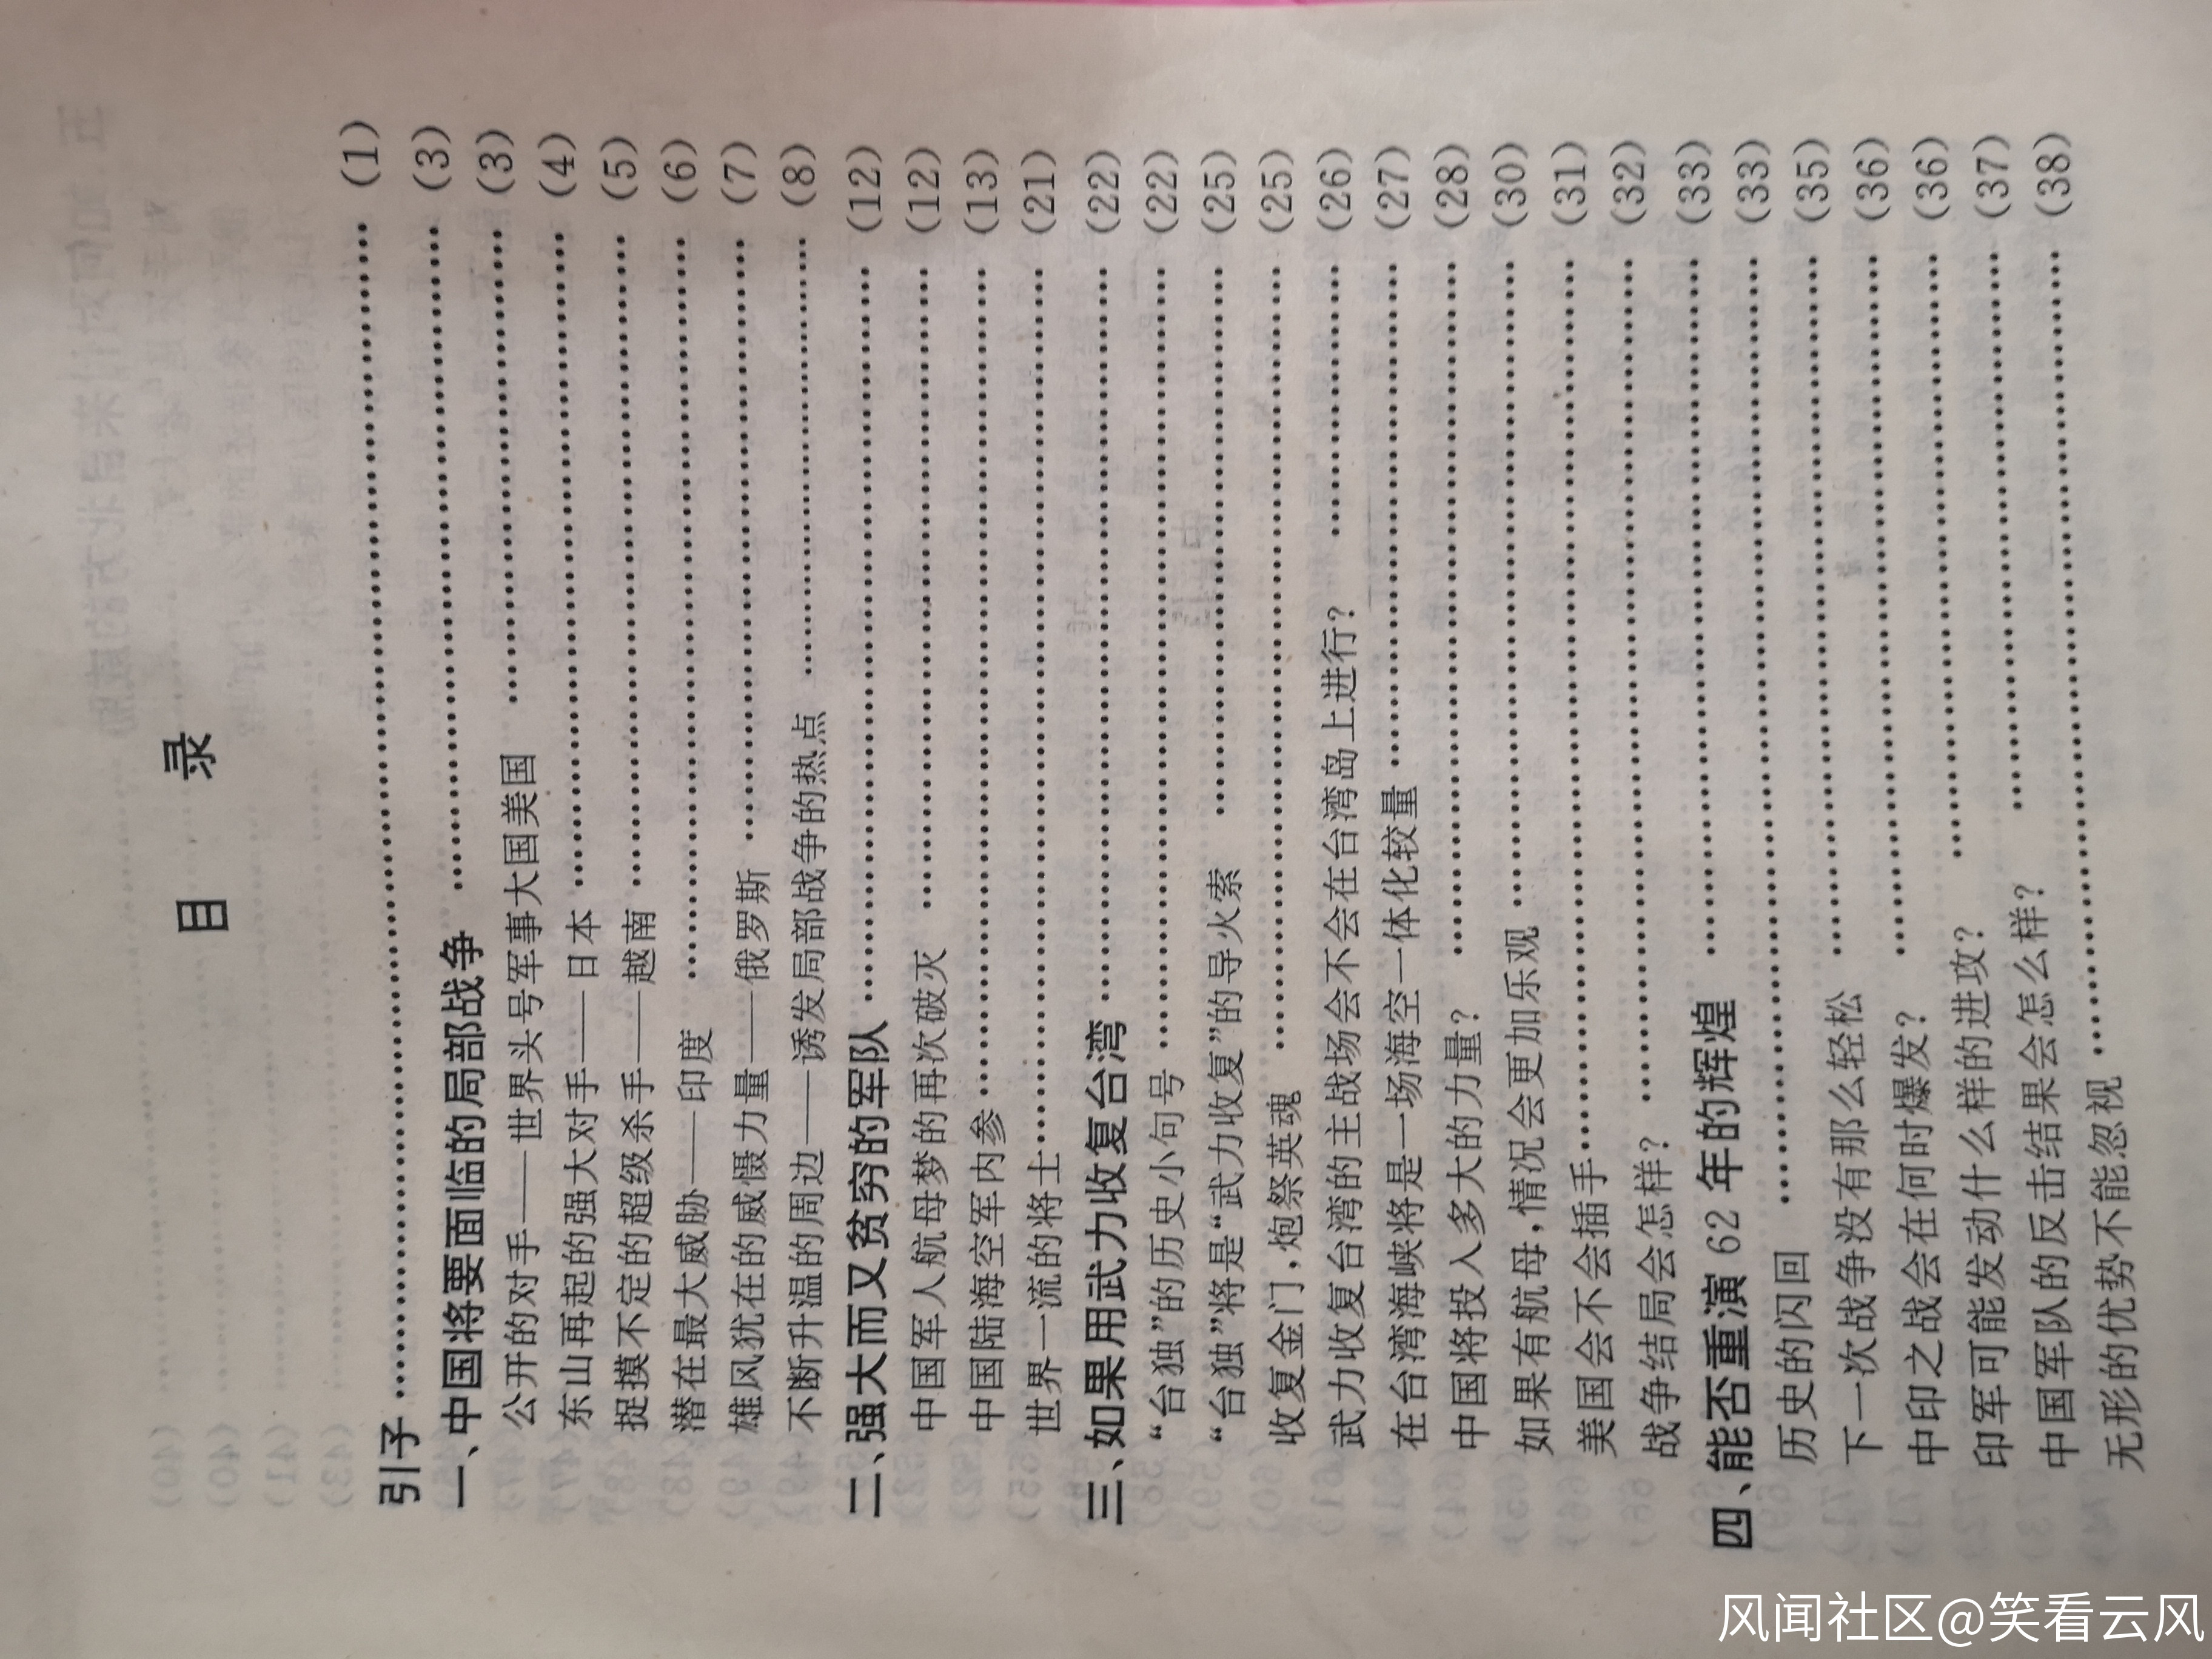 目 录
引子 …… (1)
一、中国将要面临的局部战争 …… (3)
公开的对手——世界头号军事大国美国 …… (3)
东山再起的强大对手——日本 …… (4)
捉摸不定的超级杀手——越南 …… (5)
潜在最大威胁——印度 …… (6)
雄风犹在的威慑力量——俄罗斯 …… (7)
不断升温的周边——诱发局部战争的热点 …… (8)
二、强大而又贫穷的军队 …… (12)
中国军人航母梦的再次破灭 …… (12)
中国陆海空军内参 …… (13)
世界一流的将士 …… (21)
三、如果用武力收复台湾 …… (22)
“台独”的历史小句号 …… (22)
“台独”将是“武力收复”的导火索 …… (25)
收复金门，炮祭英魂 …… (25)
武力收复台湾的主战场会不会在台湾岛上进行？ …… (26)
在台湾海峡将是一场海空一体化较量 …… (27)
中国将投入多大的力量？ …… (28)
如果有航母，情况会更加乐观 …… (30)
美国会不会插手 …… (31)
战争结局会怎样？ …… (32)
四、能否重演 62 年的辉煌 …… (33)
历史的闪回 …… (33)
下一次战争没有那么轻松 …… (35)
中印之战会在何时爆发？ …… (36)
印军可能发动什么样的进攻？ …… (36)
中国军队的反击结果会怎么样？ …… (37)
无形的优势不能忽视 …… (38)
风闻社区@笑看云风